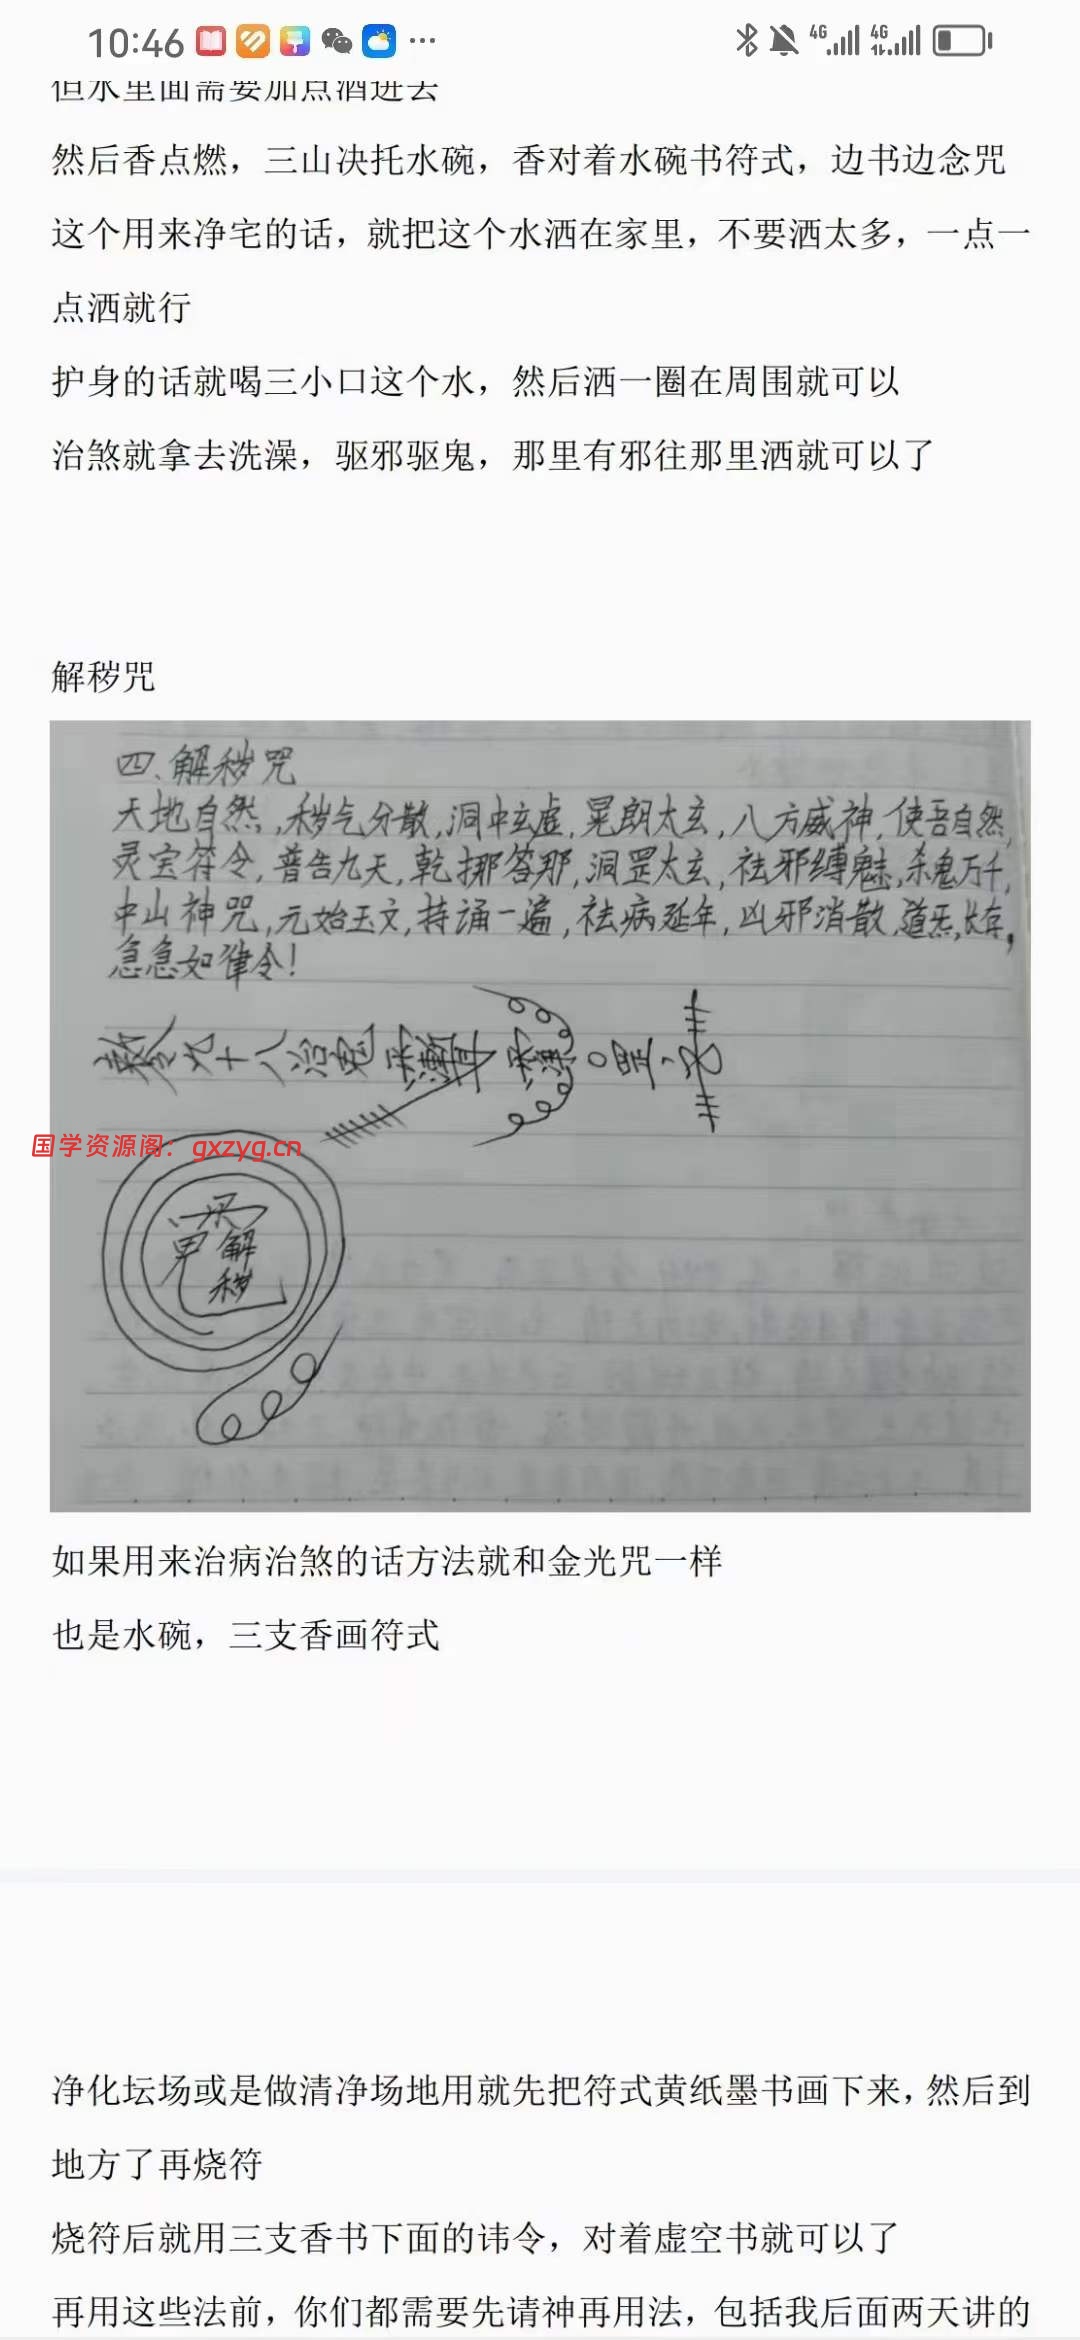 10:46
4G 4G
但水里面需要加点酒进去
然后香点燃，三山决托水碗，香对着水碗书符式，边书边念咒
这个用来净宅的话，就把这个水洒在家里，不要洒太多，一点一
点洒就行
护身的话就喝三小口这个水，然后洒一圈在周围就可以
治煞就拿去洗澡，驱邪驱鬼，那里有邪往那里洒就可以了
解秽咒
四.解秽咒
天地自然，秽气分散，洞中玄虚，晃朗太玄，八方威神，使吾自然，
灵宝符令，普告九天，乾挪答那，洞罡太玄，祛邪缚魅，杀鬼万千，
中山神咒，元始玉文，持诵一遍，祛病延年，凶邪消散，道炁长存，
急急如律令！
国学资源阁：gxzyg.cn
解
秽
如果用来治病治煞的话方法就和金光咒一样
也是水碗，三支香画符式
净化坛场或是做清净场地用就先把符式黄纸墨书画下来，然后到
地方了再烧符
烧符后就用三支香书下面的讳令，对着虚空书就可以了
再用这些法前，你们都需要先请神再用法，包括我后面两天讲的